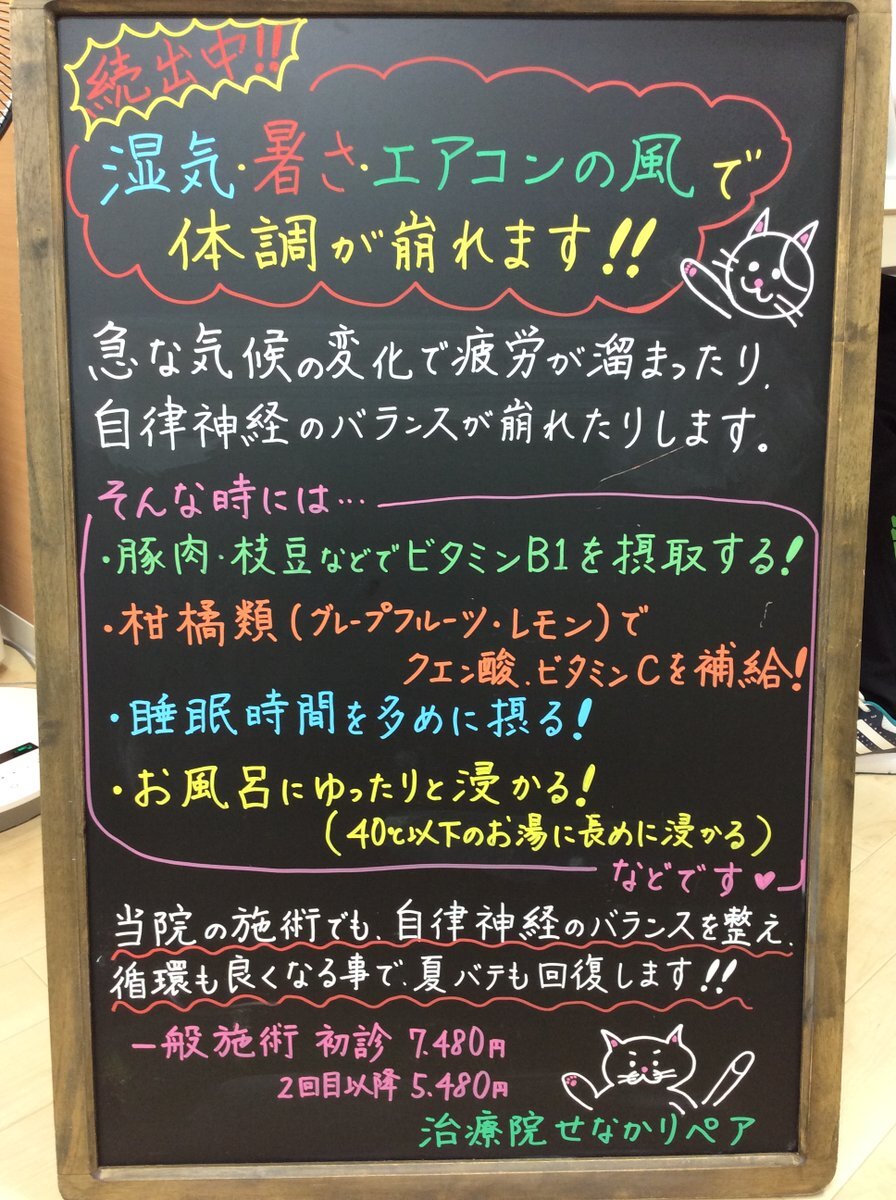 続出中!!
湿気・暑さ・エアコンの風で
体調が崩れます!!
急な気候の変化で疲労が溜まったり、
自律神経のバランスが崩れたりします。
そんな時には…
・豚肉・枝豆などでビタミンB1を摂取する!
・柑橘類(グレープフルーツ・レモン)で
クエン酸、ビタミンCを補給!
・睡眠時間を多めに摂る!
・お風呂にゆったりと浸かる!
(40℃以下のお湯に長めに浸かる)
などです♥
当院の施術でも、自律神経のバランスを整え、
循環も良くなる事で、夏バテも回復します!!
一般施術 初診 7.480円
2回目以降 5.480円
治療院せなかリペア